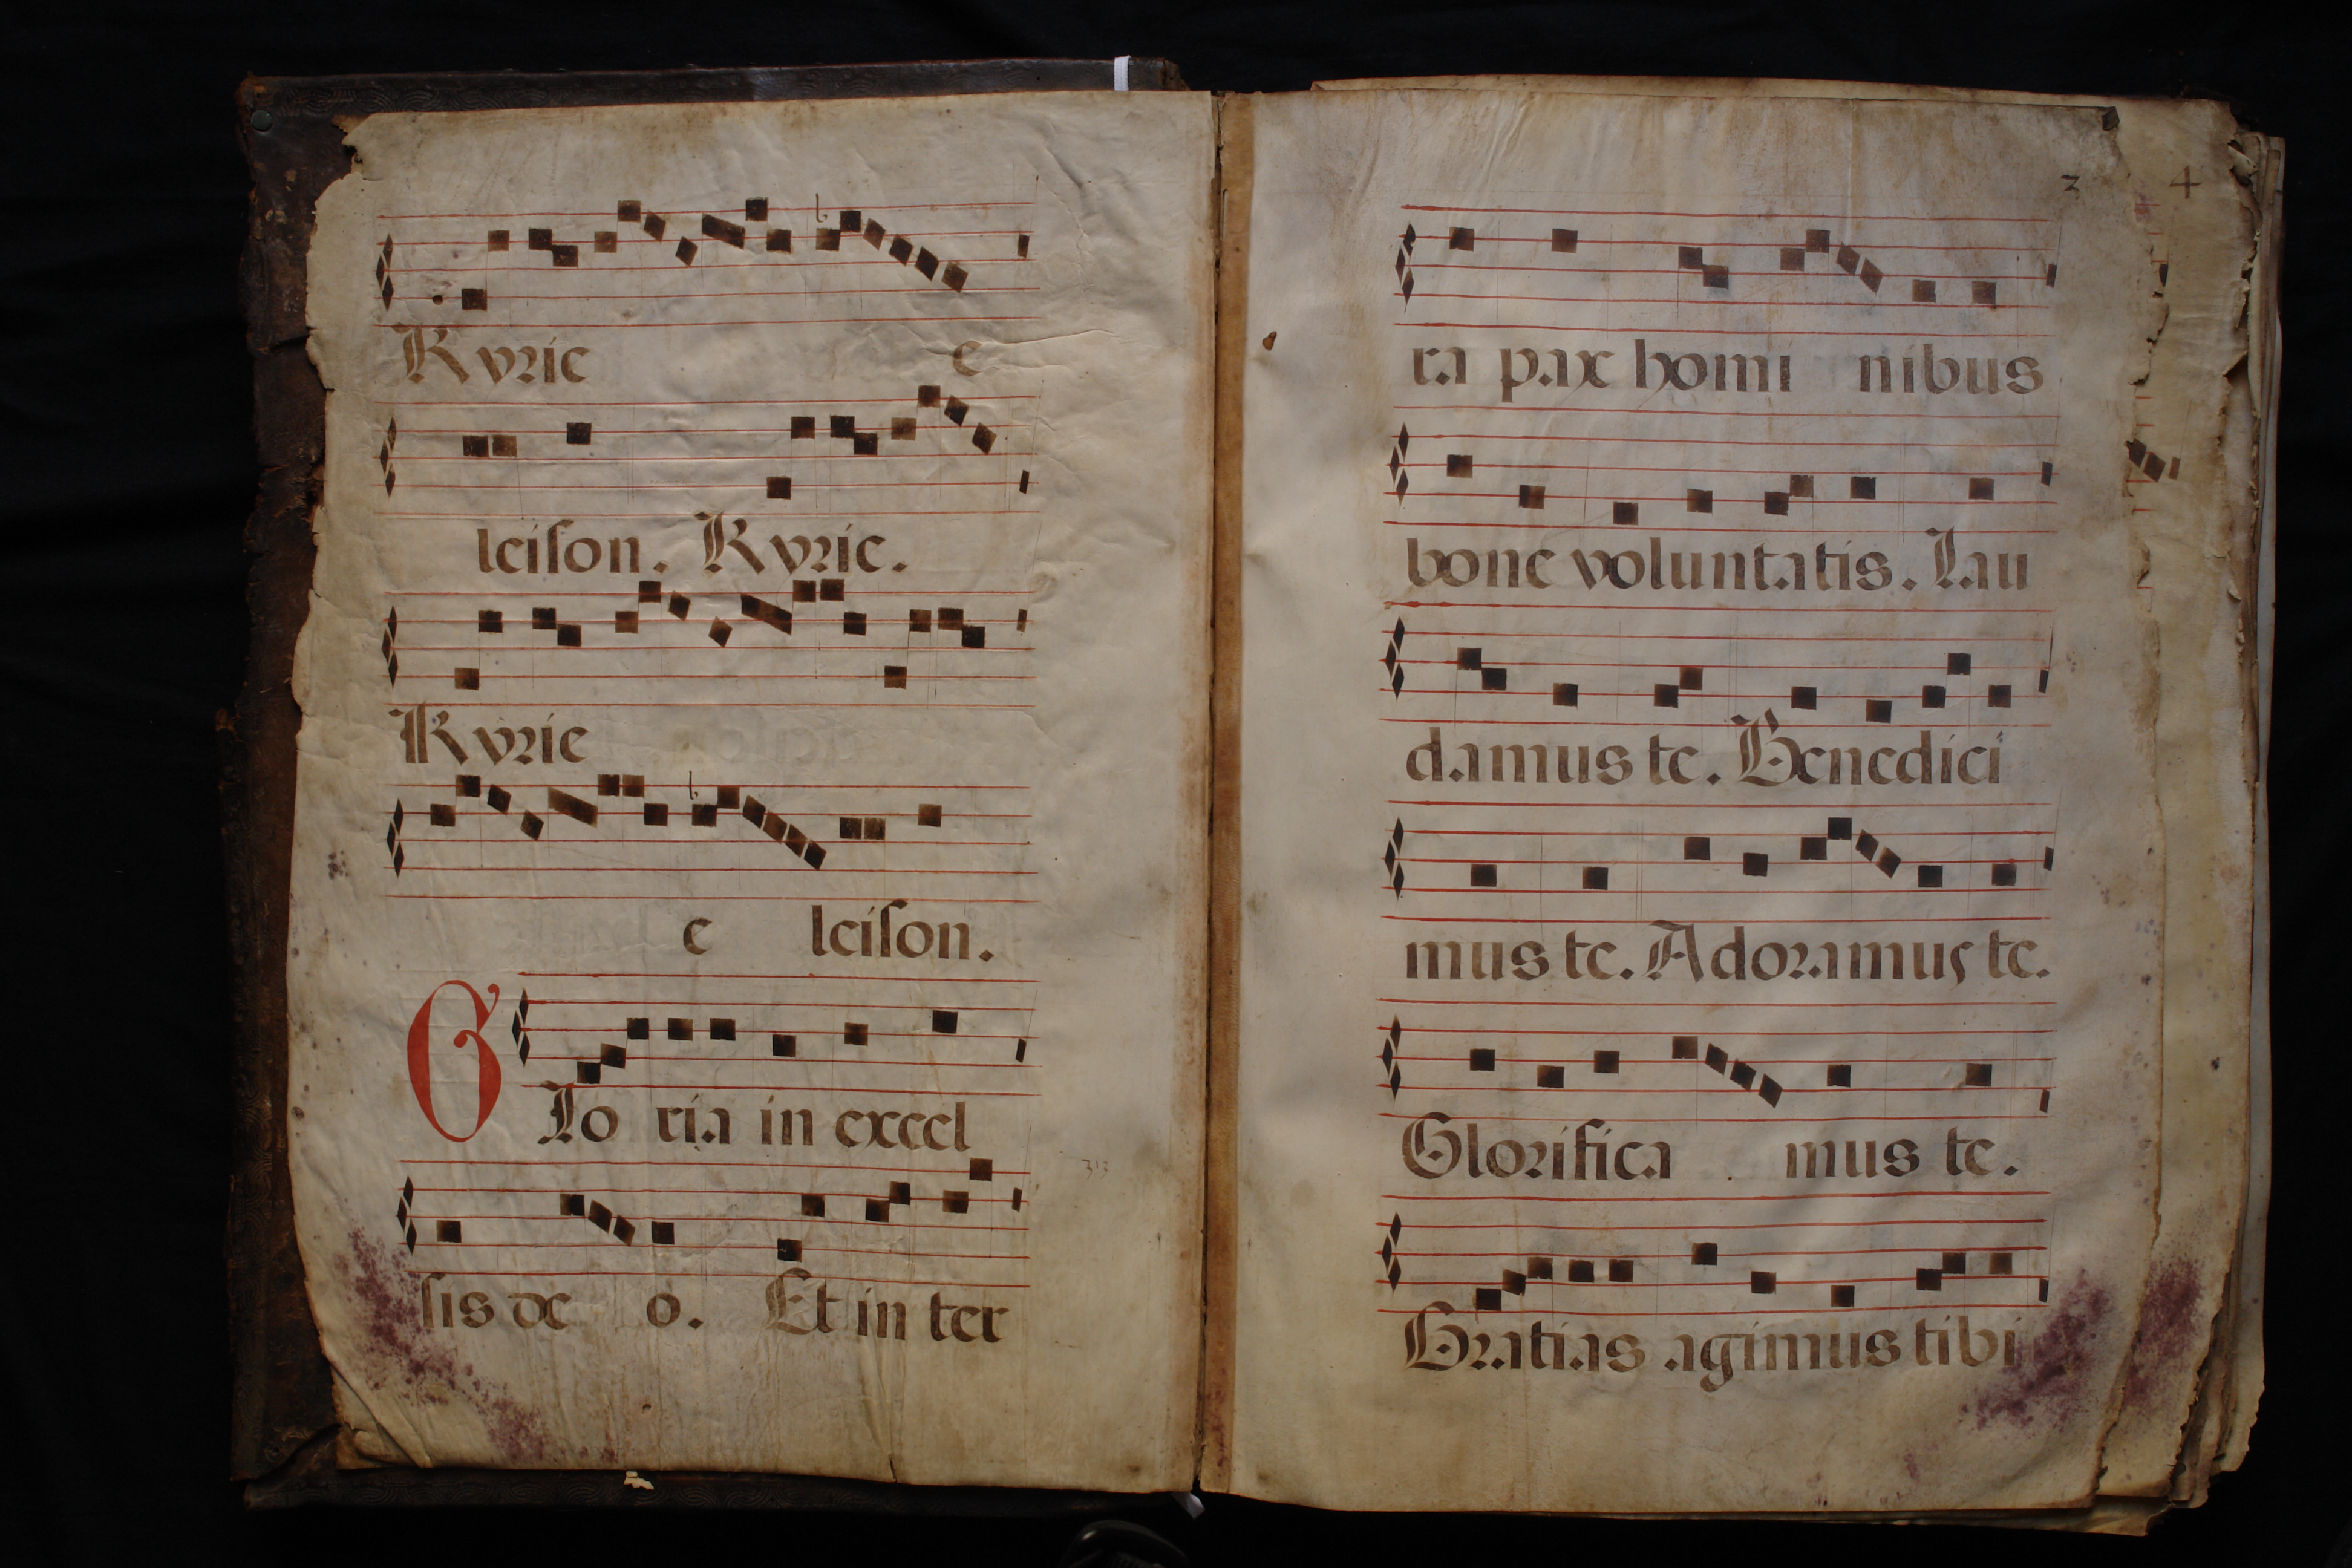 Kyrie e
leiſon. Kyrie.
Kyrie
e leiſon.
Glo ria in excel
ſis de o. Et in ter
3
4
ra pax homi nibus
bone voluntatis. Lau
damus te. Benedici
mus te. Adoramus te.
Glorifica mus te.
Gratias agimus tibi